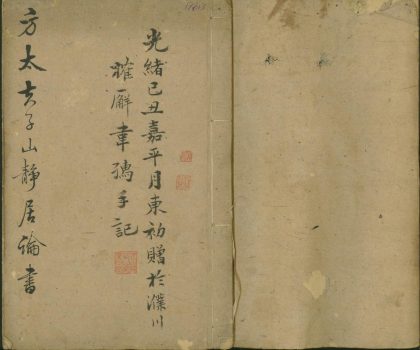 光緒己丑嘉平月東初贈於濮川
韋手記
方太夫子山靜居論書